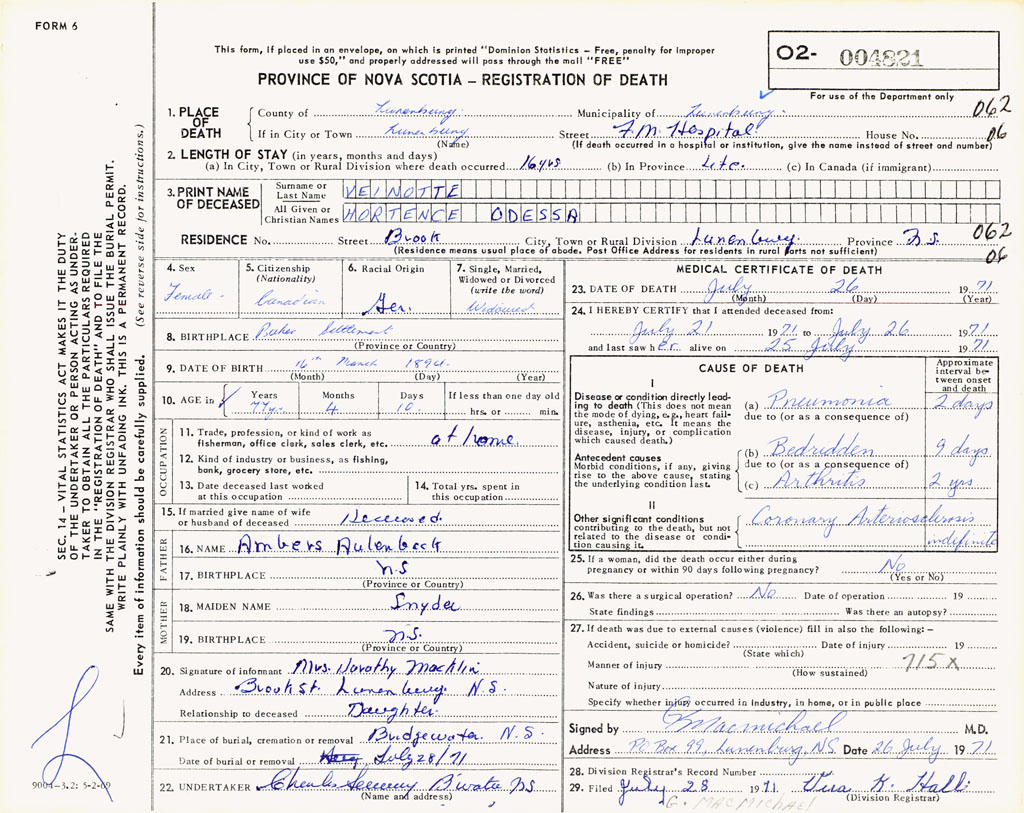 FORM 6
This form, if placed in an envelope, on which is printed "Dominion Statistics – Free, penalty for improper
use $50," and properly addressed will pass through the mail "FREE"
PROVINCE OF NOVA SCOTIA – REGISTRATION OF DEATH
O2- 004821
For use of the Department only
062
06
1. PLACE OF DEATH
County of Lunenburg Municipality of Lunenburg
If in City or Town Lunenburg Street F.M. Hospital House No.
(Name) (If death occurred in a hospital or institution, give the name instead of street and number)
2. LENGTH OF STAY (in years, months and days)
(a) In City, Town or Rural Division where death occurred 16 yrs (b) In Province Life. (c) In Canada (if immigrant)
3. PRINT NAME OF DECEASED
Surname or Last Name VEINOTTE
All Given or Christian Names HORTENCE ODESSA
RESIDENCE No. Street Brook City, Town or Rural Division Lunenburg. Province N.S.
(Residence means usual place of abode. Post Office Address for residents in rural parts not sufficient)
062
06
4. Sex
Female
5. Citizenship
(Nationality)
Canadian
6. Racial Origin
Ger.
7. Single, Married,
Widowed or Divorced
(write the word)
Widowed
8. BIRTHPLACE Baker Settlement
(Province or Country)
9. DATE OF BIRTH 16th March 1894
(Month) (Day) (Year)
10. AGE in Years Months Days If less than one day old
77 yrs. 4 10 hrs. or min.
OCCUPATION
11. Trade, profession, or kind of work as
fisherman, office clerk, sales clerk, etc. at home.
12. Kind of industry or business, as fishing,
bank, grocery store, etc.
13. Date deceased last worked
at this occupation
14. Total yrs. spent in
this occupation
15. If married give name of wife
or husband of deceased Deceased.
FATHER
16. NAME Ambers Aulenback
17. BIRTHPLACE N.S
(Province or Country)
MOTHER
18. MAIDEN NAME Snyder
19. BIRTHPLACE N.S.
(Province or Country)
20. Signature of informant Mrs. Dorothy Macklin
Address Brook St. Lunenburg. N.S.
Relationship to deceased Daughter
21. Place of burial, cremation or removal Bridgewater. N.S.
Date of burial or removal July 28/71
22. UNDERTAKER B'water NS
(Name and address)
MEDICAL CERTIFICATE OF DEATH
23. DATE OF DEATH July 26 1971
(Month) (Day) (Year)
24. I HEREBY CERTIFY that I attended deceased from:
July 21 1971 to July 26 1971
and last saw her alive on 25 July 1971
CAUSE OF DEATH
Approximate
interval be-
tween onset
and death
I
Disease or condition directly lead-
ing to death (This does not mean
the mode of dying, e.g., heart fail-
ure, asthenia, etc. It means the
disease, injury, or complication
which caused death.)
(a) Pneumonia 2 days
due to (or as a consequence of)
Antecedent causes
Morbid conditions, if any, giving
rise to the above cause, stating
the underlying condition last.
(b) Bedridden 9 days
due to (or as a consequence of)
(c) Arthritis 2 yrs
II
Other significant conditions
contributing to the death, but not
related to the disease or condi-
tion causing it.
Coronary Arteriosclerosis
indefinite
25. If a woman, did the death occur either during
pregnancy or within 90 days following pregnancy? No
(Yes or No)
26. Was there a surgical operation? No Date of operation 19
State findings Was there an autopsy?
27. If death was due to external causes (violence) fill in also the following: –
Accident, suicide or homicide? Date of injury 19
(State which)
Manner of injury 715X
(How sustained)
Nature of injury
Specify whether injury occurred in industry, in home, or in public place
Signed by G Macmichael M.D.
Address PO Box 99, Lunenburg, NS Date 26 July 1971
28. Division Registrar's Record Number
29. Filed July 28 1971. K. Hall
(Division Registrar)
G. MACMICHAEL
SEC. 14 – VITAL STATISTICS ACT MAKES IT THE DUTY
OF THE UNDERTAKER OR PERSON ACTING AS UNDER-
TAKER TO OBTAIN ALL THE PARTICULARS REQUIRED
IN THE "REGISTRATION OF DEATH" AND TO FILE THE
SAME WITH THE DIVISION REGISTRAR WHO SHALL ISSUE THE BURIAL PERMIT.
WRITE PLAINLY WITH UNFADING INK. THIS IS A PERMANENT RECORD.
Every item of information should be carefully supplied. (See reverse side for instructions.)
9004-3.2: 5-2-69